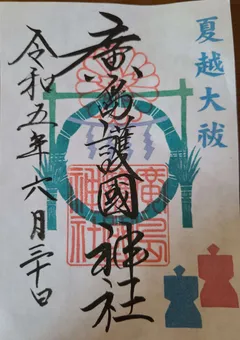 夏越大祓
廣島護國神社
令和五年六月三十日
廣島
神社